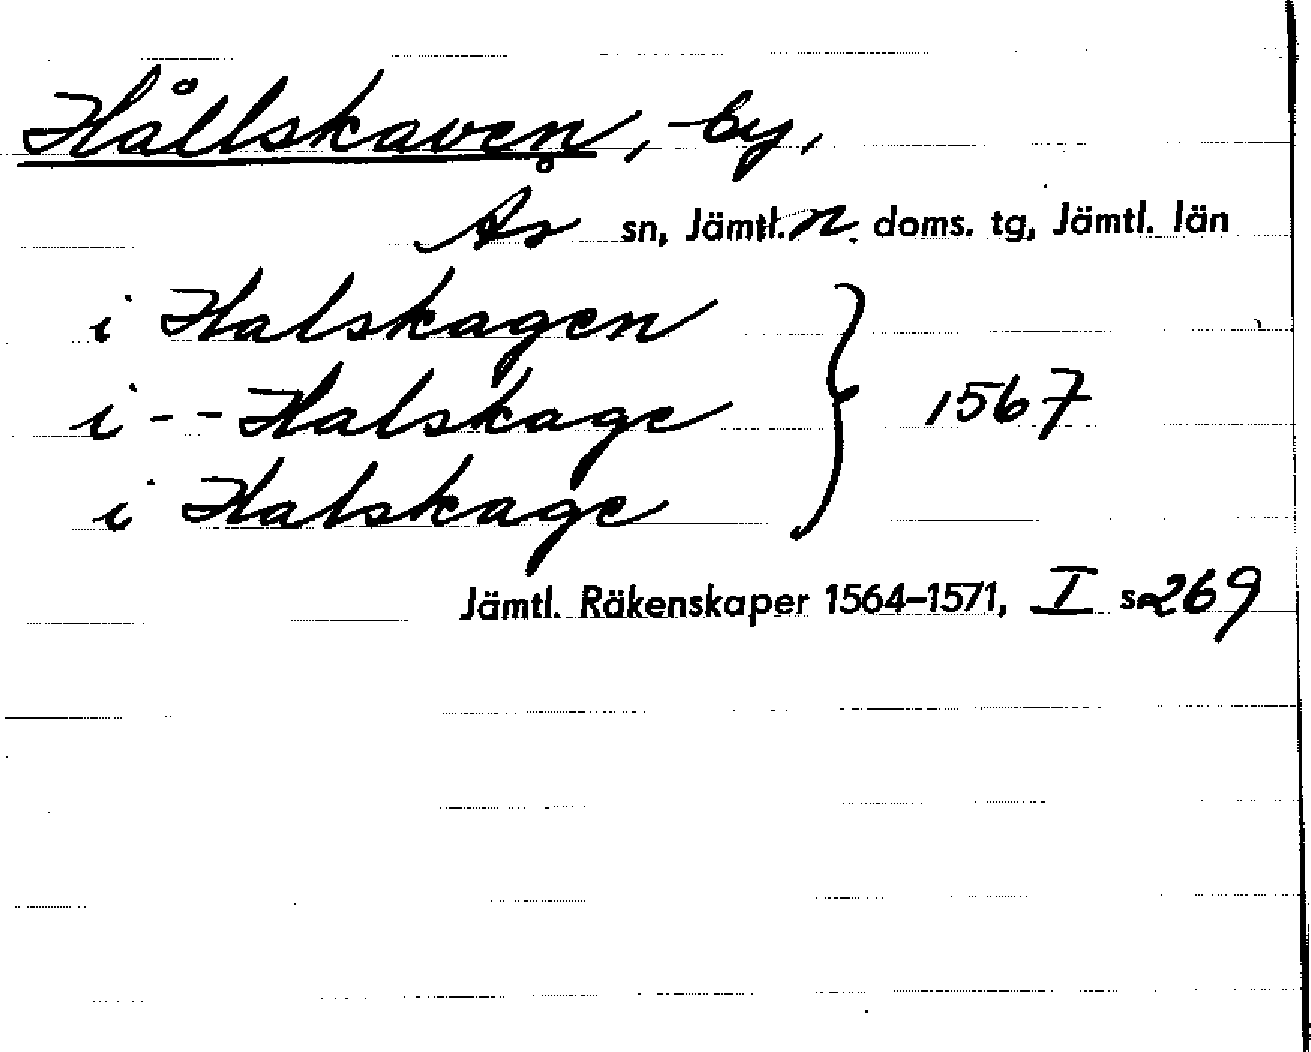 Hållskaven, -by,
Ås sn, Jämtl. n. doms. tg, Jämtl. län
i Halskagen
i -- Halskage } 1567
i Halskage
Jämtl. Räkenskaper 1564–1571, I s. 269